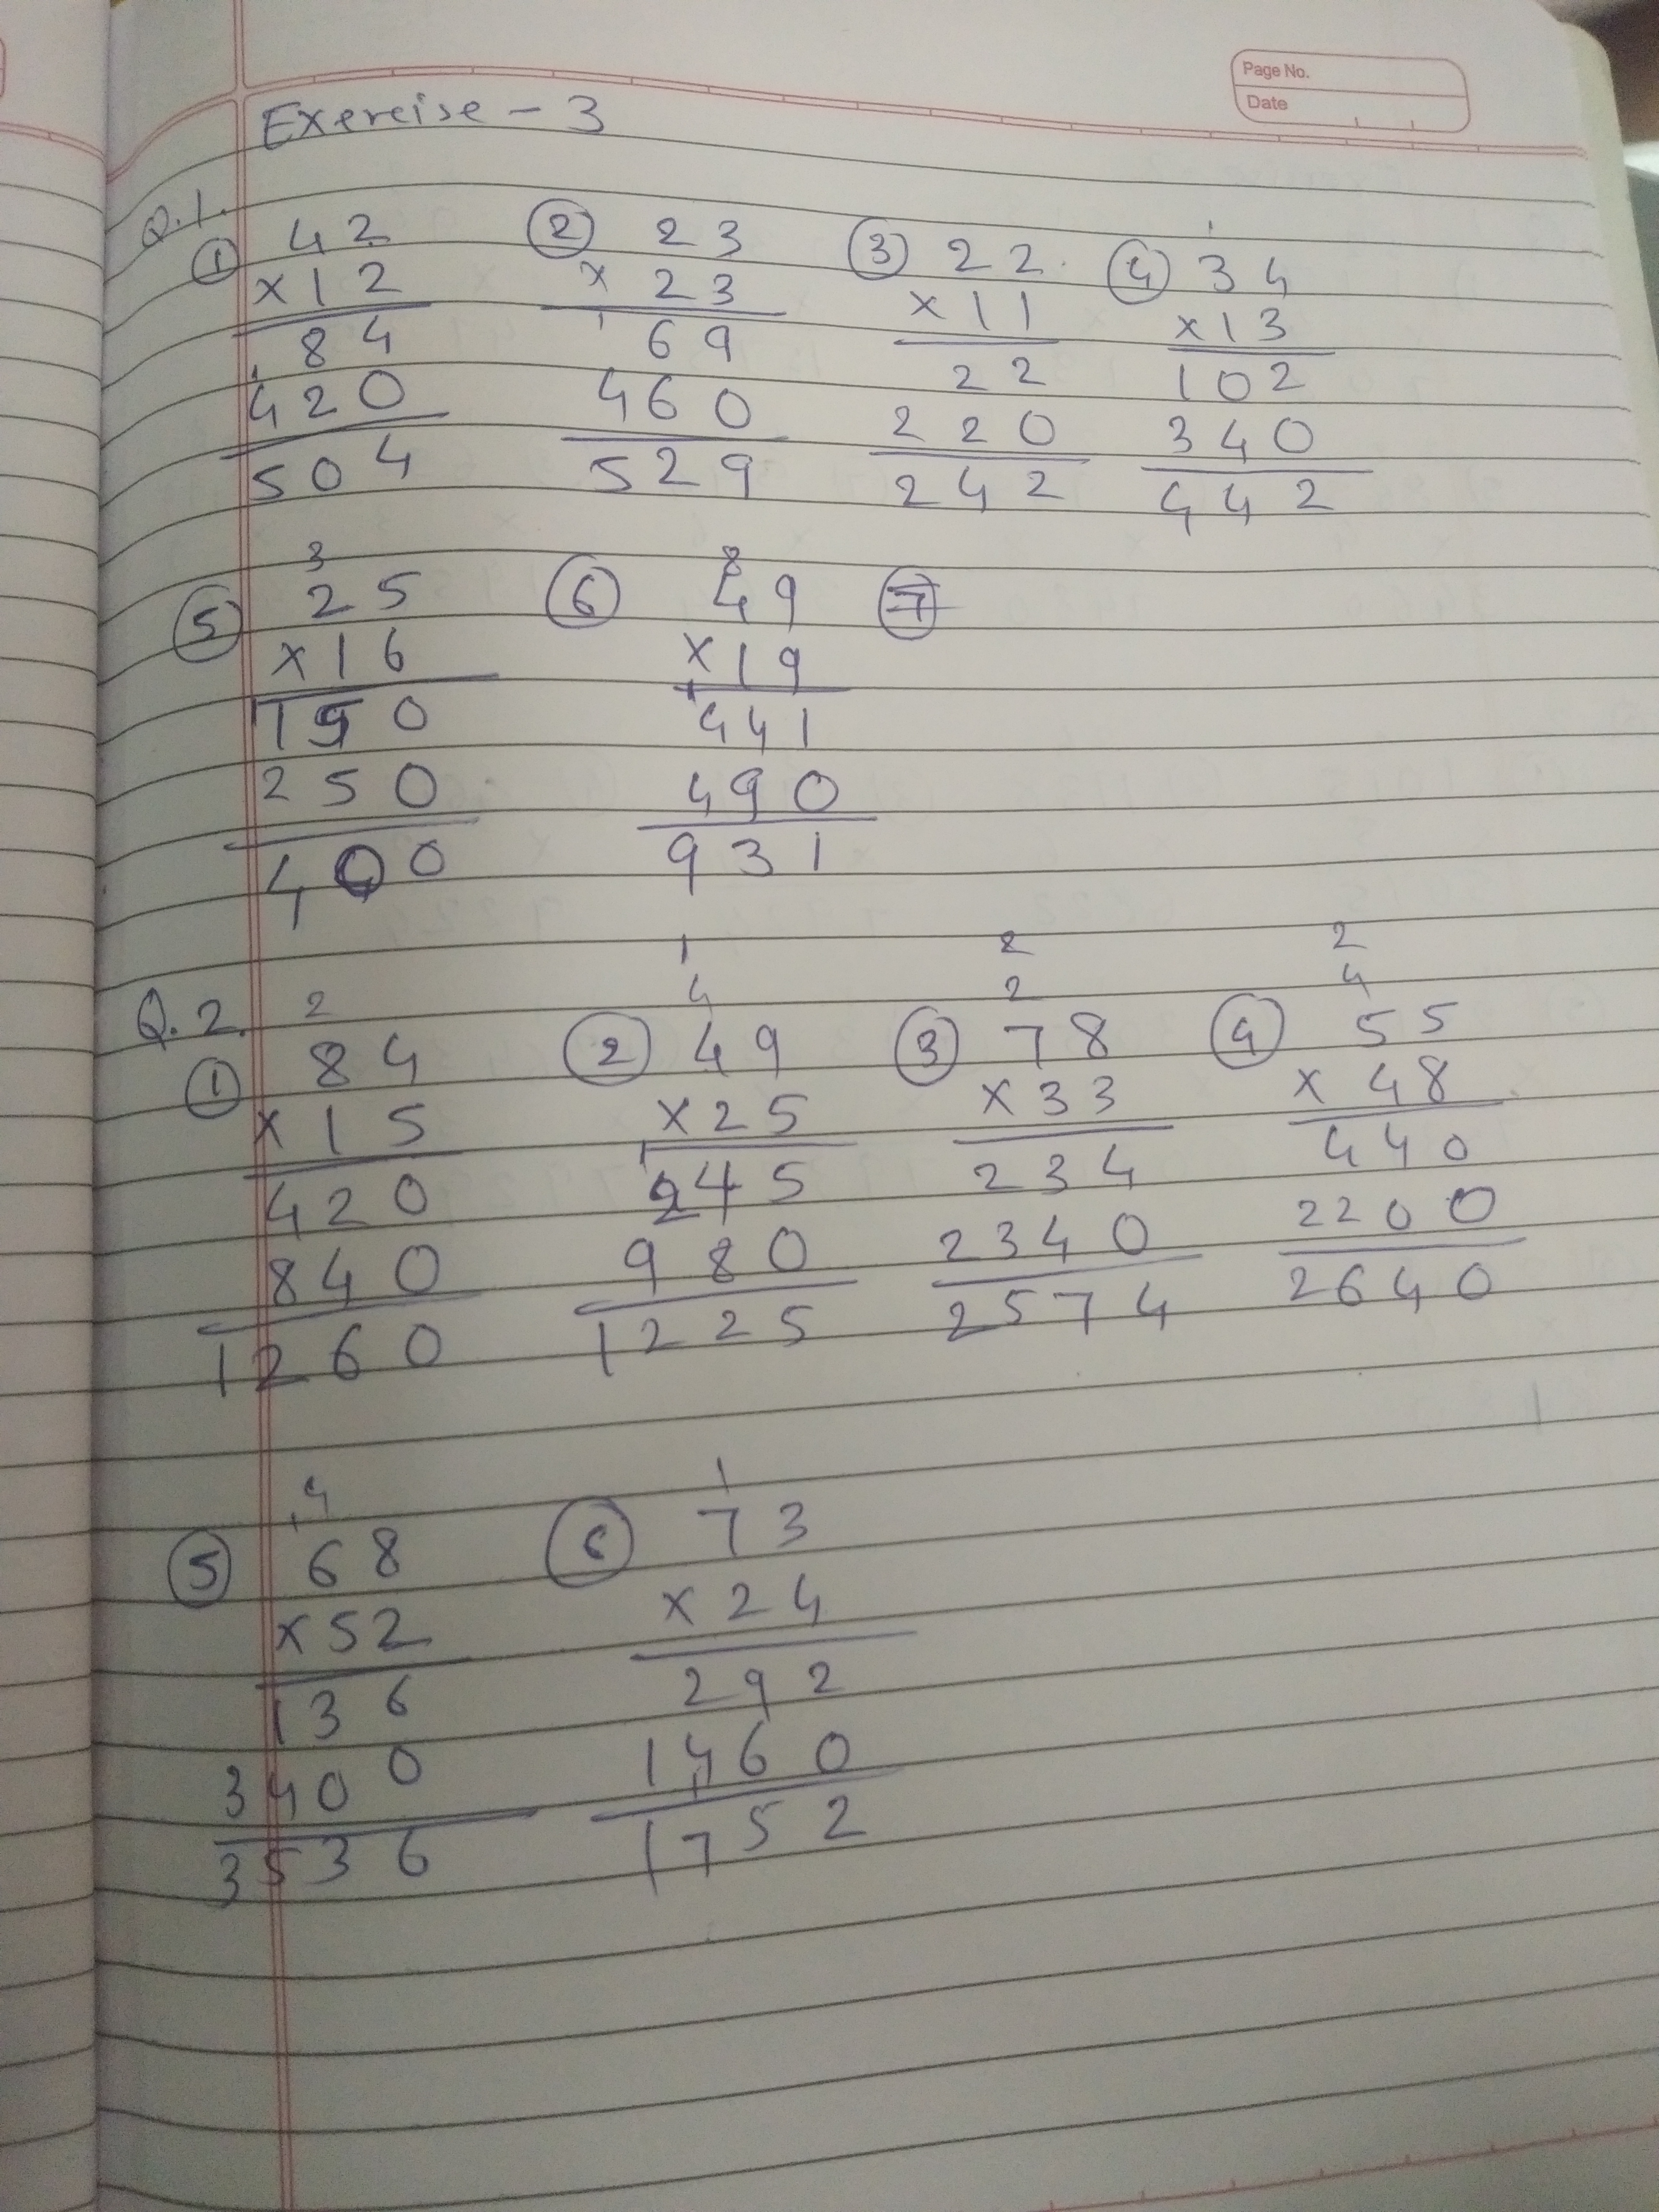 Page No.
Date
Exercise - 3
Q.1.
① 42 ② 23 ③ 22 ④ 34
×12 × 23 ×11 ×13
84 69 22 102
420 460 220 340
504 529 242 442
⑤ 25 ⑥ 49 ⑦
×16 ×19
150 441
250 490
400 931
Q.2.
① 84 ② 49 ③ 78 ④ 55
×15 ×25 ×33 × 48
420 245 234 440
840 980 2340 2200
1260 1225 2574 2640
⑤ 68 ⑥ 73
×52 ×24
136 292
3400 1460
3536 1752